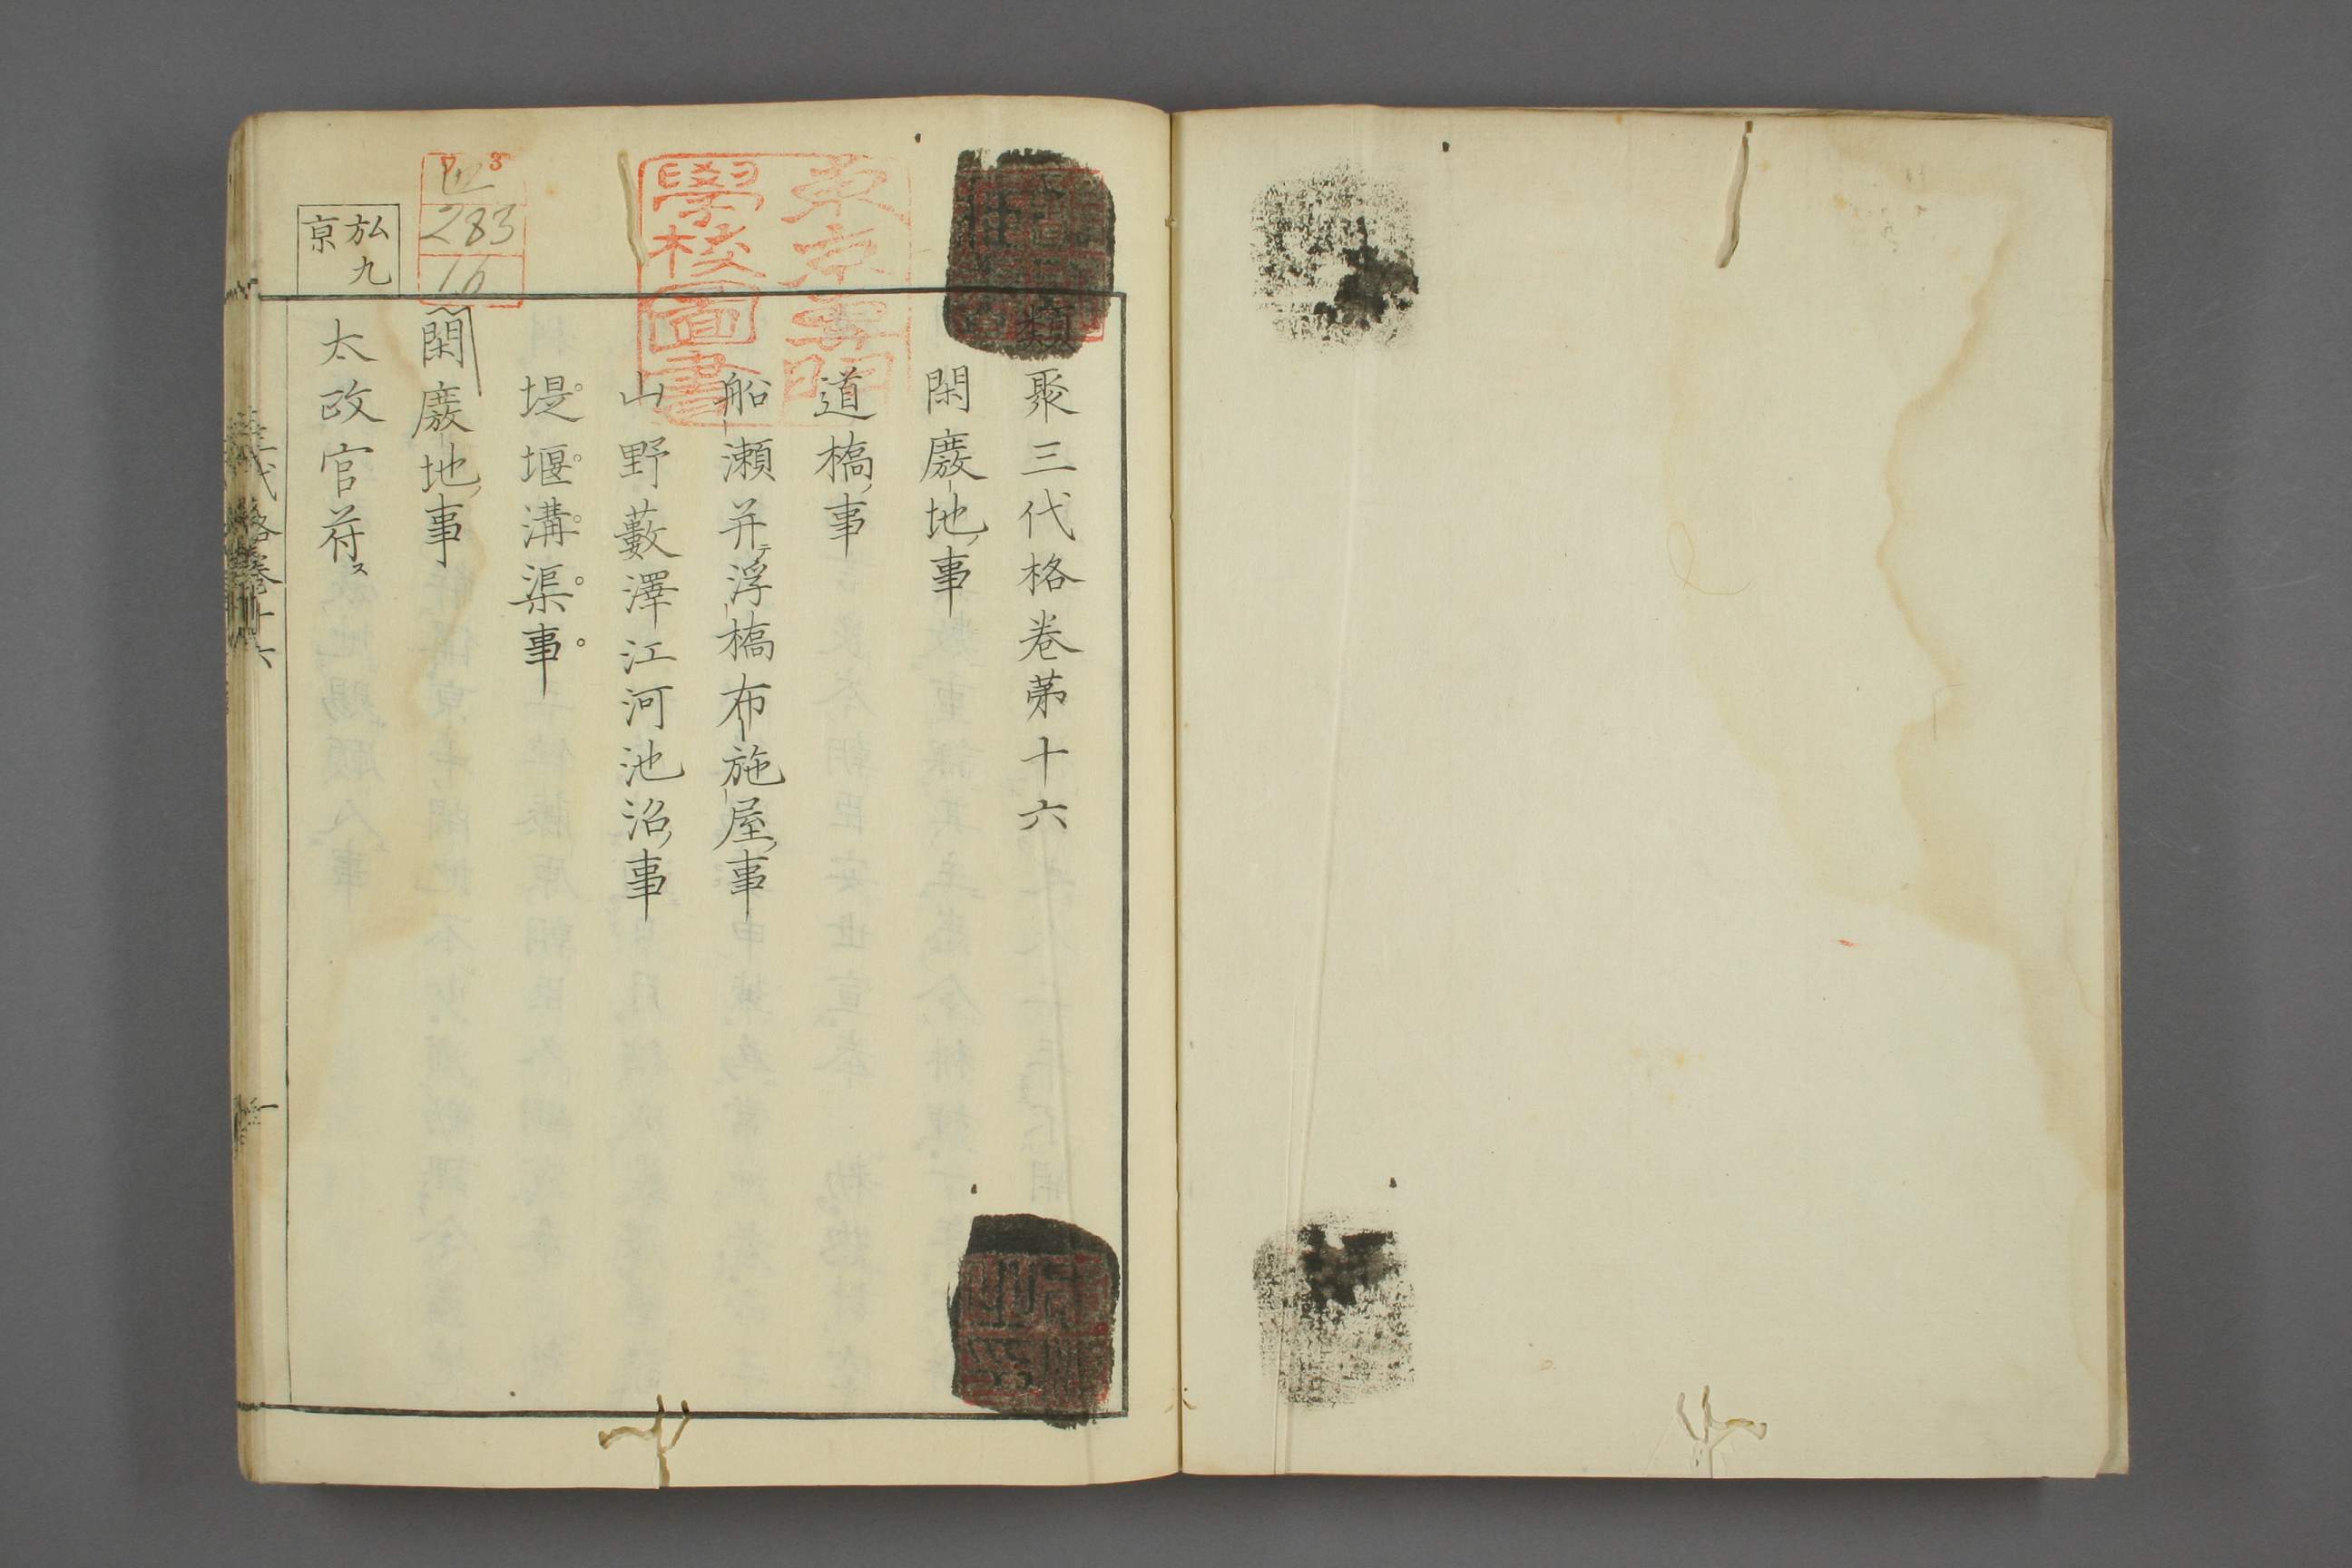 類聚三代格卷第十六
閑廢地事
道橋事
船瀬并浮橋布施屋事
山野藪澤江河池沼事
堤堰溝渠事
閑廢地事
太政官苻ス
弘九
京
3
283
16
學校圖書
三代格卷十六
一